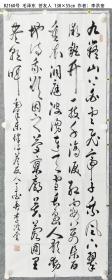 B2160号 毛泽东 答友人 138×35cm 作者：李洪奎
九嶷山上白云飞帝子乘风下翠
微斑竹一枝千滴泪红霞万朵百重
衣洞庭波涌连天雪长岛人歌动
地诗我欲因之梦寥廓芙蓉国里
尽朝晖 毛泽东诗答友人